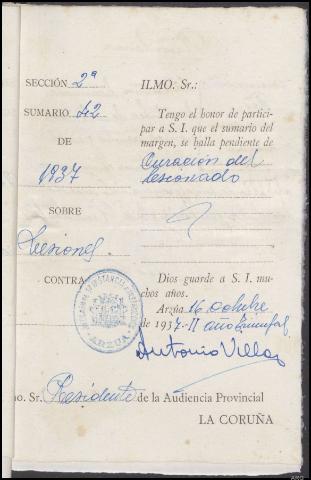 SECCIÓN 2ª
SUMARIO 42
DE
1937
SOBRE
Lesiones
CONTRA
ILMO. Sr.:
Tengo el honor de partici-
par a S. I. que el sumario del
margen, se halla pendiente de
Curación del
lesionado
Dios guarde a S. I. mu-
chos años.
Arzúa 16 octubre
de 1937. II año triunfal
Antonio Villar
mo. Sr. Presidente de la Audiencia Provincial
LA CORUÑA
ARZUA